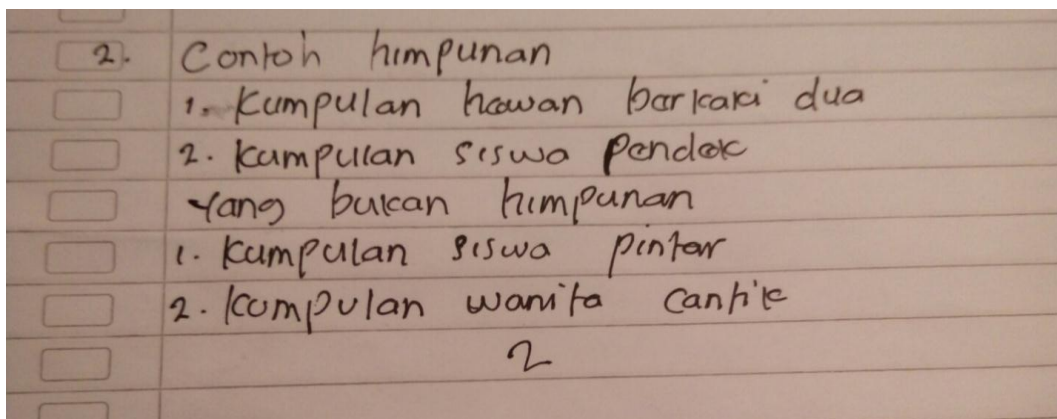 2. Contoh himpunan
1. Kumpulan hewan berkaki dua
2. kumpulan siswa pendek
Yang bukan himpunan
1. kumpulan siswa pinter
2. kumpulan wanita cantik
2